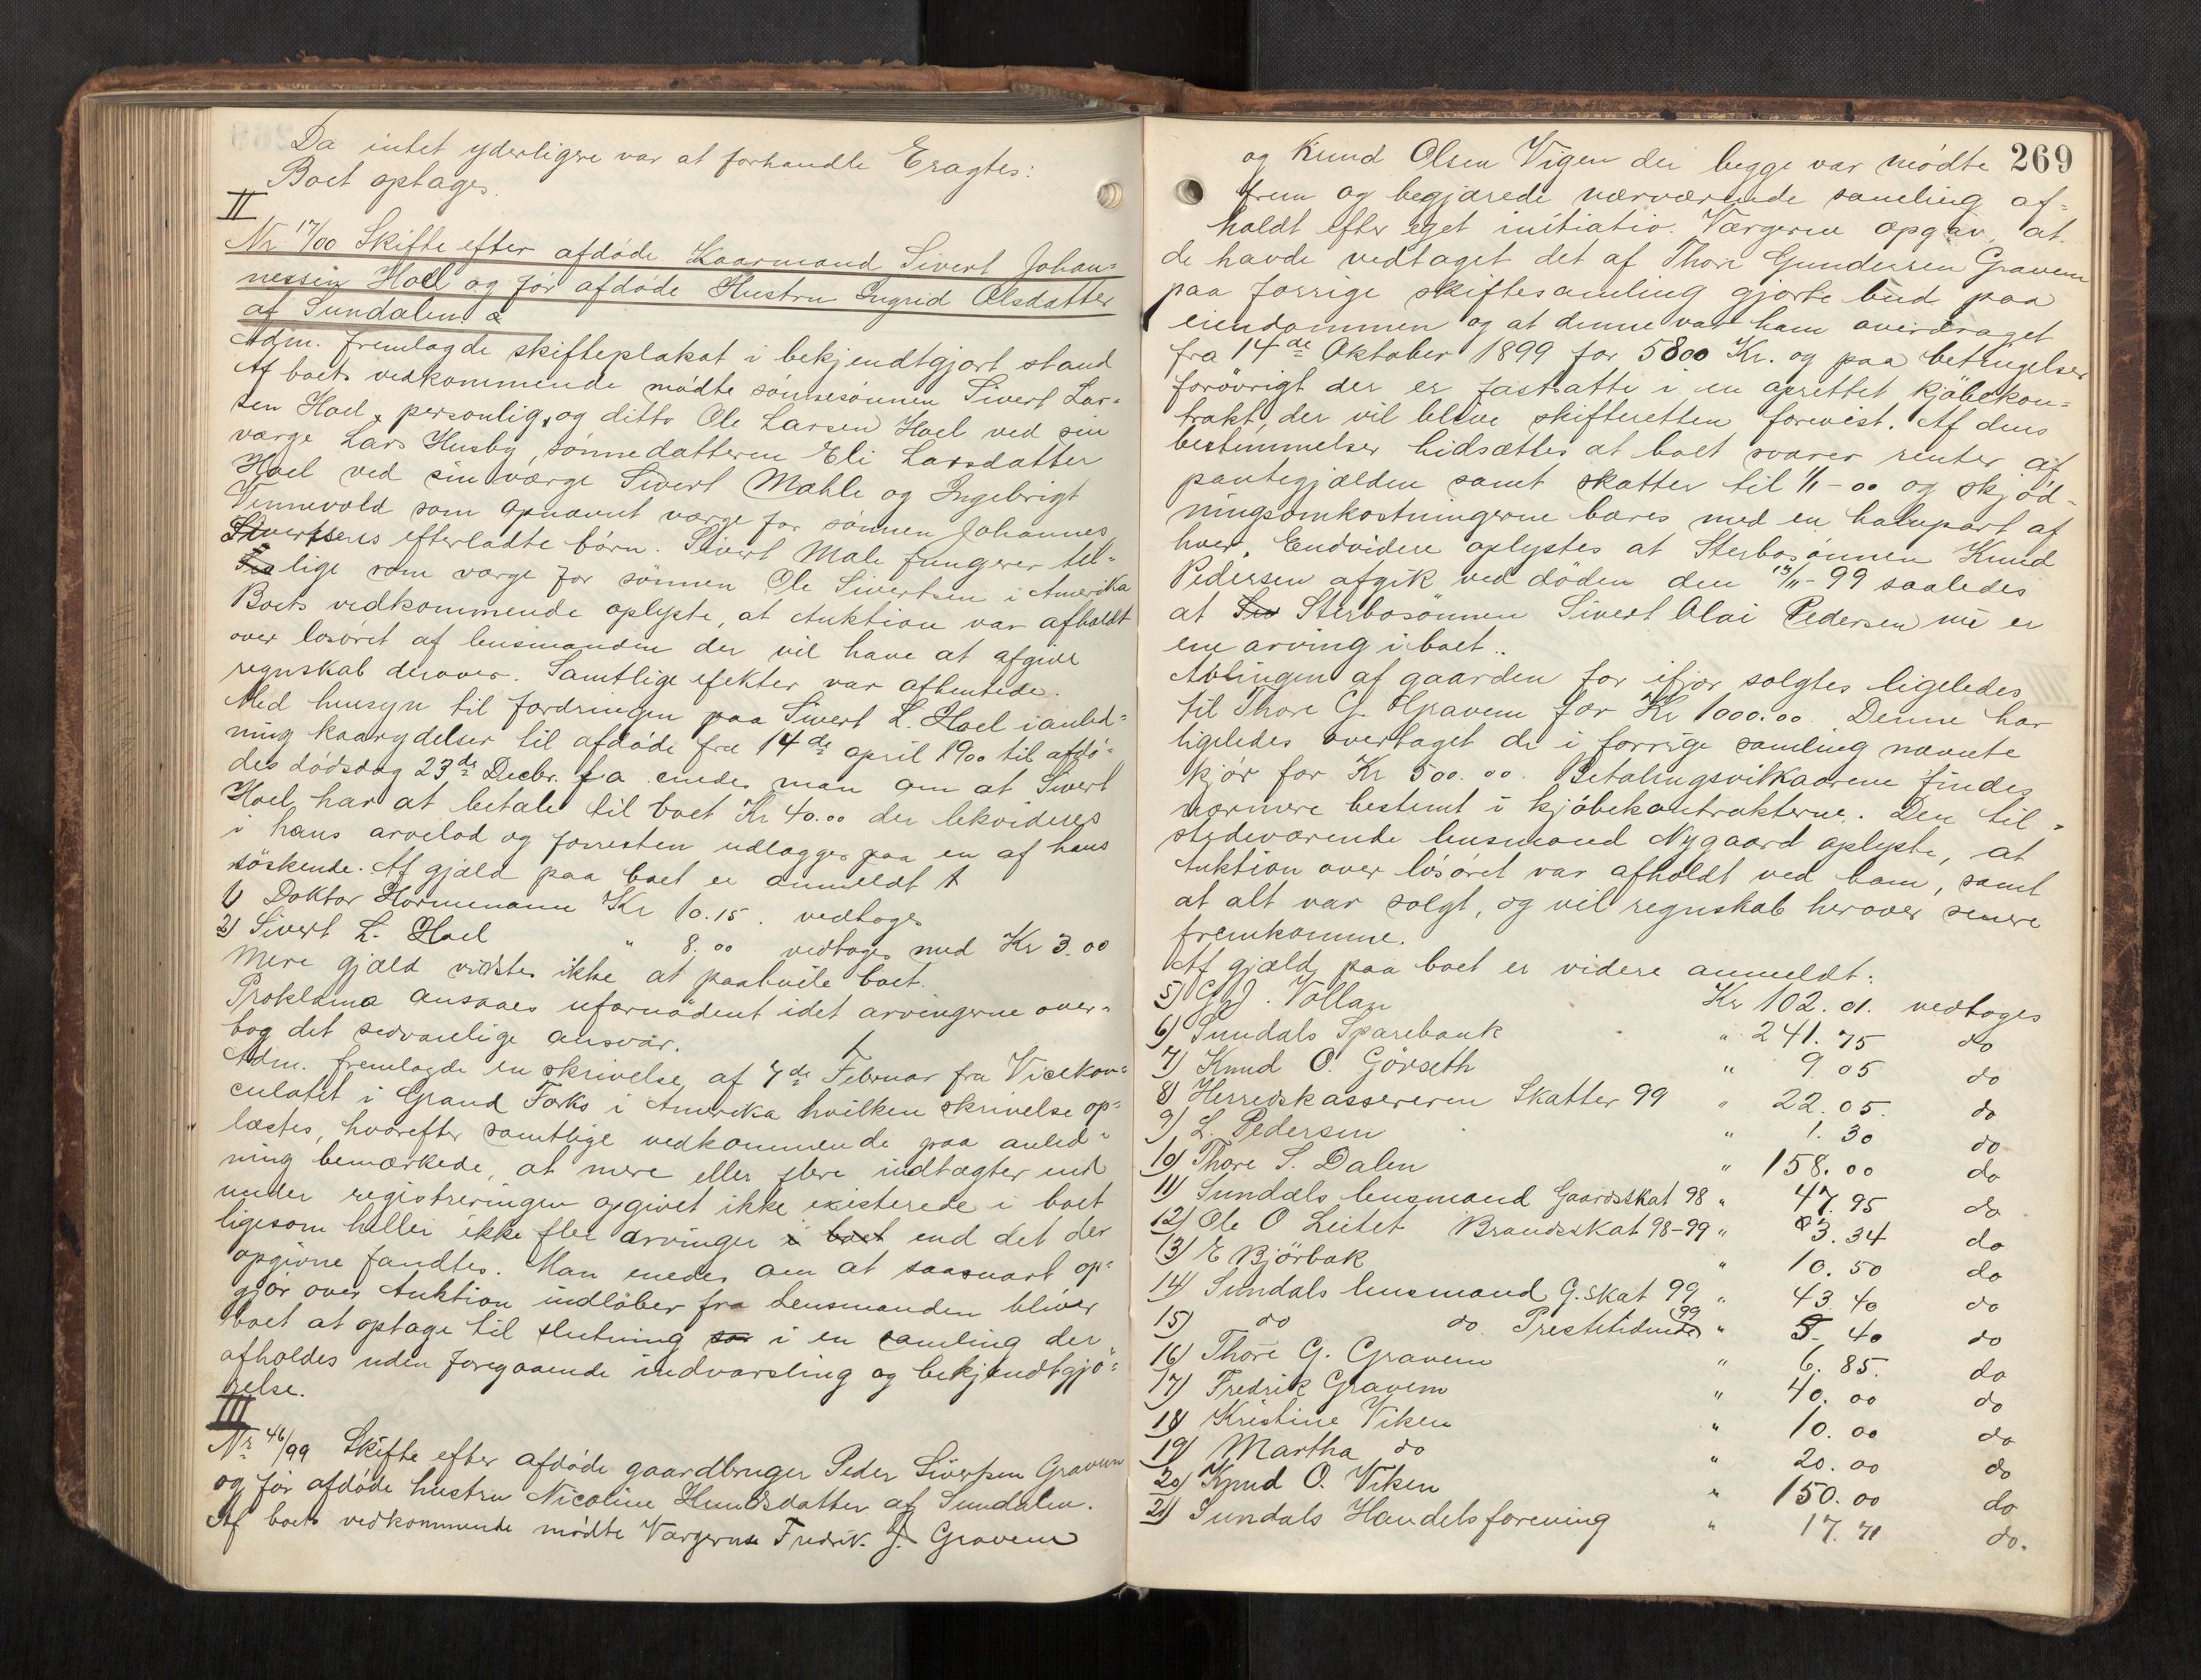 Da intet yderligere var at forhandle Eragtes:
Boet optages.
II
Nr 17/00 Skifte efter afdøde Kaarmand Sivert Johan=
nessen Hoel og før afdøde Hustru Ingrid Olsdatter
af Sundalen.
Adm. fremlagde skifteplakat i bekjendtgjort stand
Af boets vedkommende mødte sønnesønnen Sivert Lar=
sen Hoel, personlig, og ditto Ole Larsen Hoel ved sin
værge Lars Husby, sønnedatteren Eli Larsdatter
Hoel ved sin værge Sivert Mæhle og Ingebrigt
Vennevold som opnævnt værge for sønnen Johannes
Sivertsens efterladte børn. Sivert Male fungerer til=
lige som værge for sønnen Ole Sivertsen i Amerika
Boets vedkommende oplyste, at Auktion var afholdt
over løsøret af lensmanden der vil have at afgive
regnskab derover. Samtlige efekter var afhentede.
Med hensyn til fordringen paa Sivert L. Hoel i anled=
ning kaarydelser til afdøde fra 14de april 1900 til afdø=
des dødsdag 23de Decbr. f.a. enedes man om at Sivert
Hoel har at betale til boet Kr 40.00 der likvideres
i hans arvelod og forresten udlægges paa en af hans
søskende. Af gjæld paa boet er anmeldt
1) Doktor Hormann Kr 10.15. vedtoges
2) Sivert L. Hoel " 8.00 vedtoges med Kr 3.00
Mere gjæld vidstes ikke at paahvile boet.
Proklama ansaaes ufornødent idet arvingerne over=
tog det sedvanlige ansvar.
Adm. fremlagde en skrivelse af 7de Februar fra Vicekon=
culatet i Grand Forks i Amerika hvilken skrivelse op=
læstes, hvorefter samtlige vedkommende paa anled=
ning bemærkede, at mere eller flere indtægter end
under registreringen opgivet ikke existerede i boet
ligesom heller ikke fler arvinger i boet end det der
opgivne fandtes. Man enedes om at saasnart op=
gjør over Auktion indløber fra Lensmanden bliver
boet at optage til slutning i en samling der
afholdes uden foregaaende indvarsling og bekjendtgjø=
relse.
III
Nr 46/99 Skifte efter afdøde gaardbruger Peder Sivertsen Gravem
og før afdøde hustru Nicoline Knudsdatter af Sundalen.
Af boets vedkommende mødte Værgerne Fredrik J. Gravem
269
og Knud Olsen Vigen der begge var mødte
frem og begjærede nærværende samling af=
holdt efter eget initiativ. Værgerne opgav, at
de havde vedtaget det af Thore Gundersen Gravem
paa forrige skiftesamling gjorte bud paa
eiendommen og at denne var ham overdraget
fra 14de Oktober 1899 for 5800 Kr. og paa betingelser
forøvrigt der er fastsatte i en oprettet kjøbekon=
trakt, der vil blive skifteretten forevist. Af dens
bestemmelser hidsættes at boet svarer renter af
pantegjælden samt skatter til 1/1-00 og skjød=
ningsomkostningerne bæres med en halvpart af
hver. Endvidere oplystes at Sterbosønnen Knud
Pedersen afgik ved døden den 13/11-99 saaledes
at Sterbosønnen Sivert Olai Pedersen nu er
ene arving i boet.
Avlingen af gaarden for ifjor solgtes ligeledes
til Thore G. Gravem for Kr 1000.00. Denne har
ligeledes overtaget de i forrige samling nævnte
kjør for Kr 500.00. Betalingsvilkaarene findes
nærmere bestemt i kjøbekontrakterne. Den til=
stedeværende lensmand Nygaard oplyste, at
Auktion over løsøret var afholdt ved ham, samt
at alt var solgt, og vil regnskab herover senere
fremkomme.
Af gjæld paa boet er videre anmeldt:
5) Vollan Kr 102.01. vedtoges
6) Sundals Sparebank " 241.75 do
7) Knud O. Gørseth " 9.05 do
8) Herredskassereren Skatter 99 " 22.05. do
9) L. Pedersen " 1.30 do
10) Thore S. Dalen " 158.00 do
11) Sundals lensmand Gaardsskat 98 " 47.95 do
12) Ole O Leitet Brandsskat 98-99 " 3.34 do
13) E Bjørbak " 10.50 do
14) Sundals lensmand G.skat 99 " 43.40 do
15) do do. Prestetiende 99 " 5.40 do
16) Thore G. Gravem " 6.85. do
17) Fredrik Gravem " 40.00 do
18) Kristine Viken " 10.00 do
19) Martha do " 20.00 do
20) Knud O. Viken " 150.00 do
21) Sundals Handelsforening " 17.71 do.